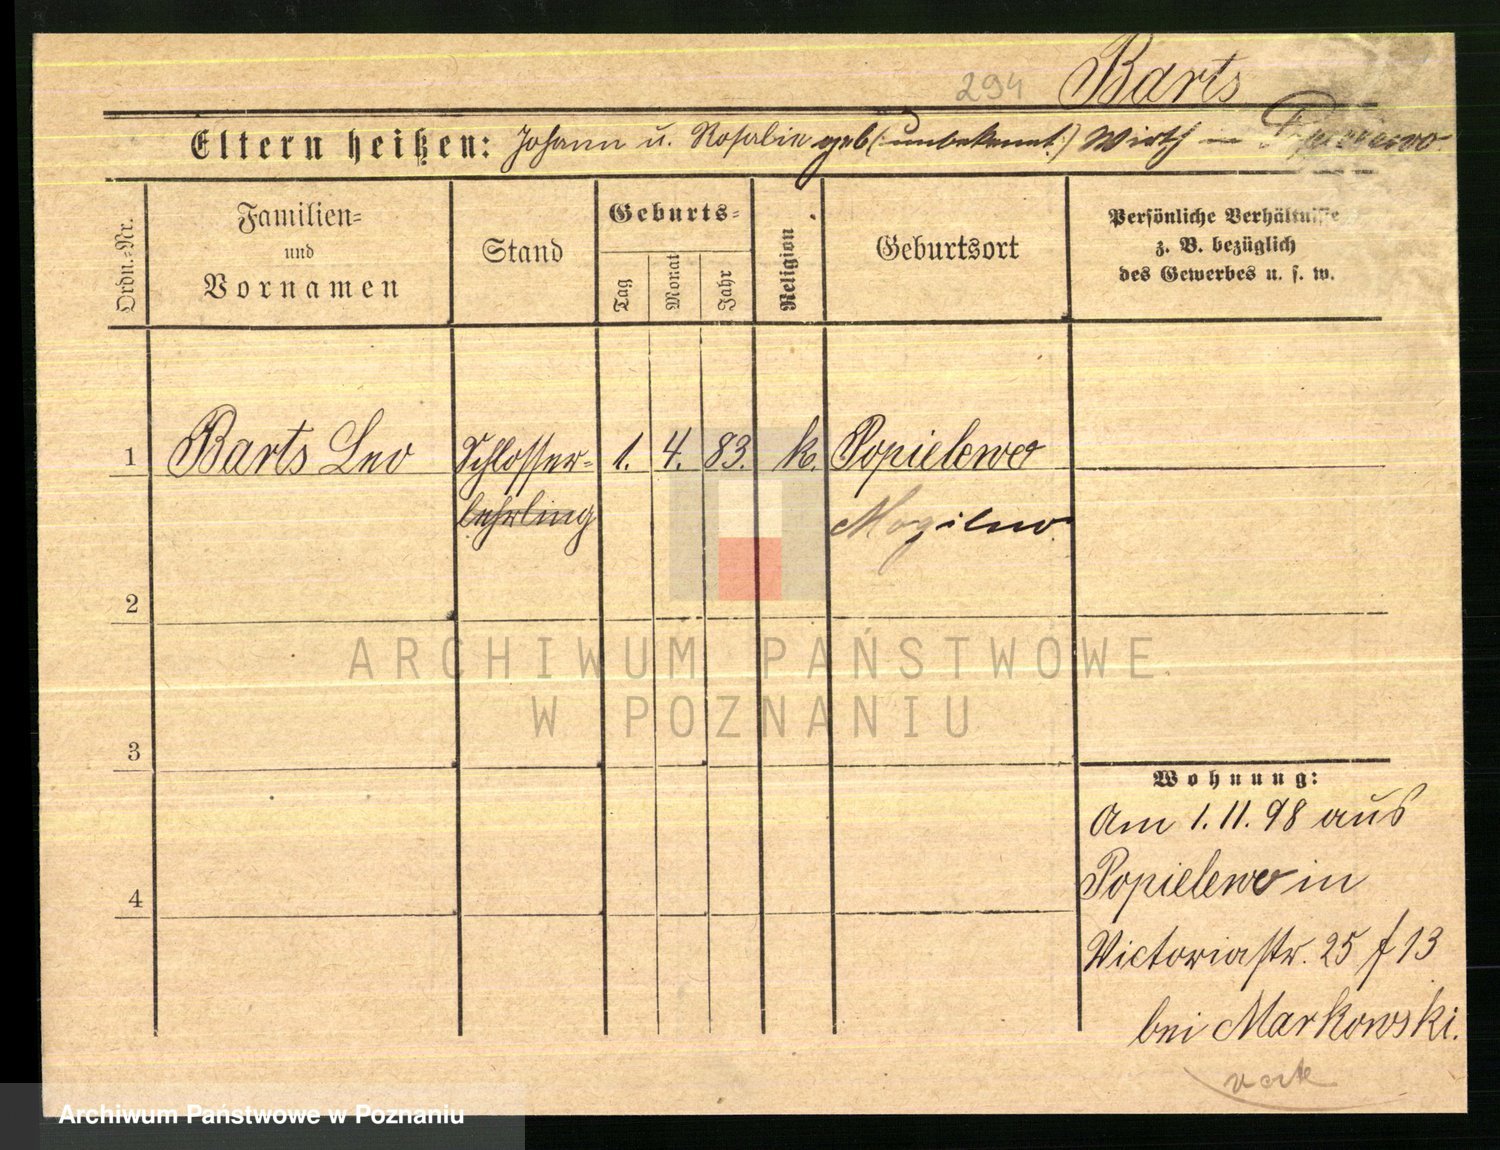 294 Barts
Eltern heißen: Johann u. Rosalie geb (: unbekannt :) Wirth in
Ordn.-Nr.
Familien-
und
Vornamen
Stand
Geburts-
Tag
Monat
Jahr
Religion
Geburtsort
Persönliche Verhältnisse
z. B. bezüglich
des Gewerbes u. s. w.
1 Barts Leo Schlosser- 1. 4. 83. k. Popielewo
lehrling Mogilno
2
ARCHIWUM PAŃSTWOWE
W POZNANIU
3
Wohnung:
Am 1. 11. 98 aus
4 Popielewo in
Victoriastr. 25 f 13
bei Markowski.
verte
Archiwum Państwowe w Poznaniu